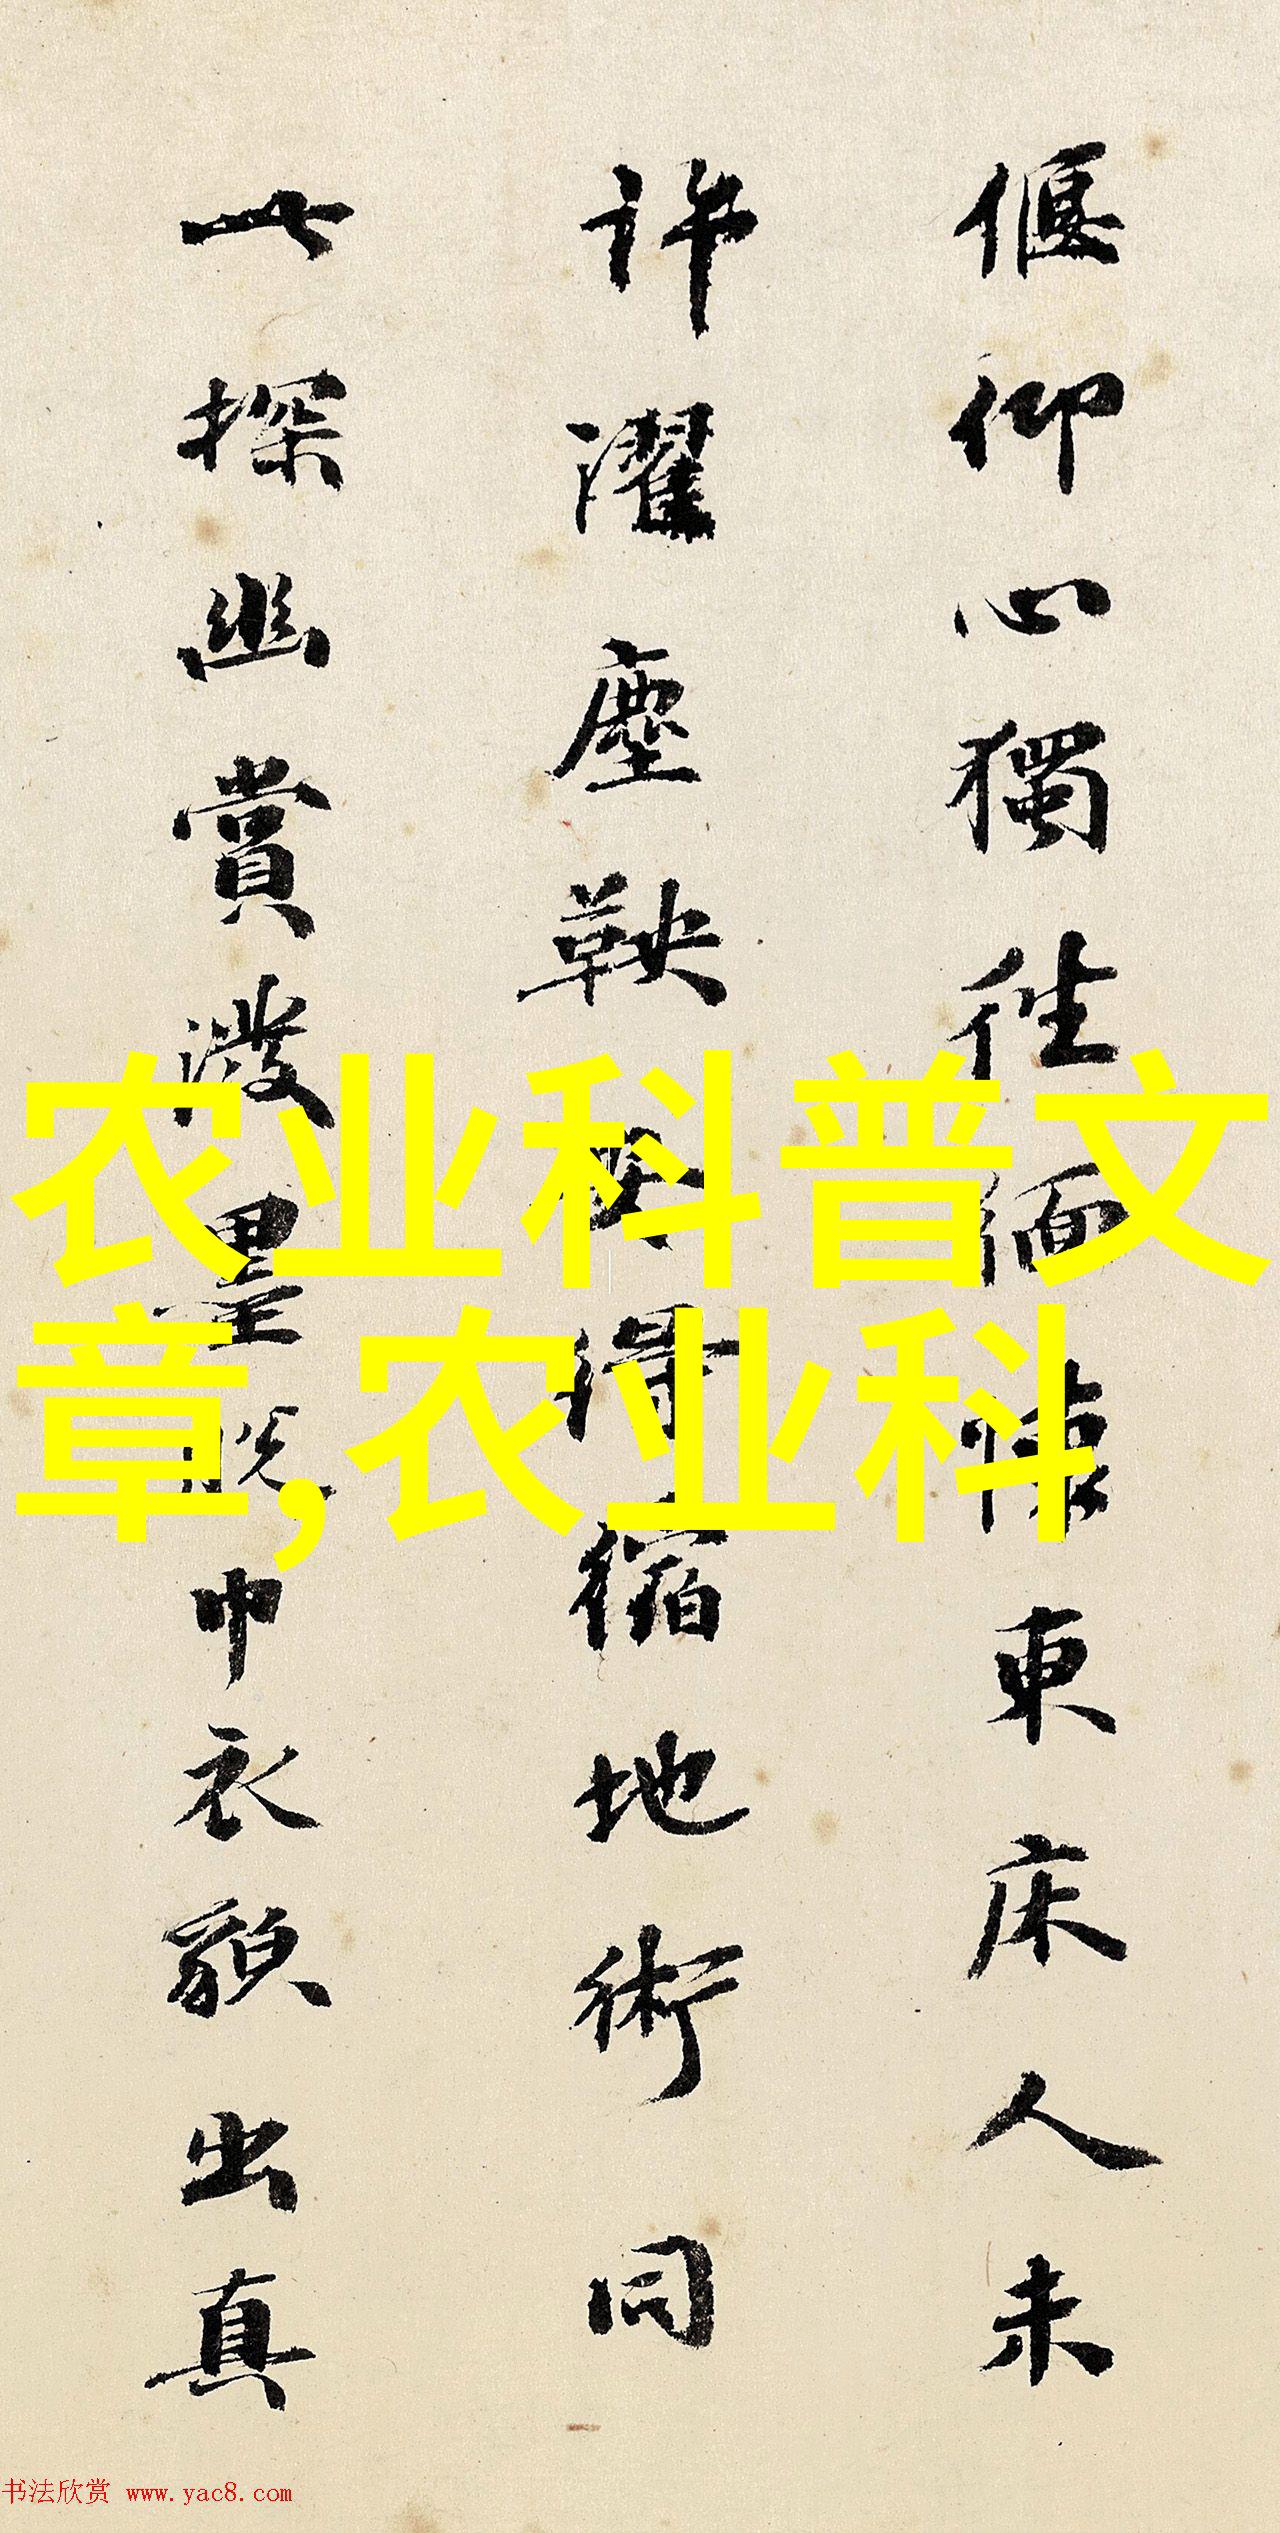 偃仰心獨往緬懷東床人未
許濯塵鞅安得縮地術同
此探幽賞潑墨脫巾衣顏出真
农业科普文
章,农业科
书法欣赏 www.yac8.com